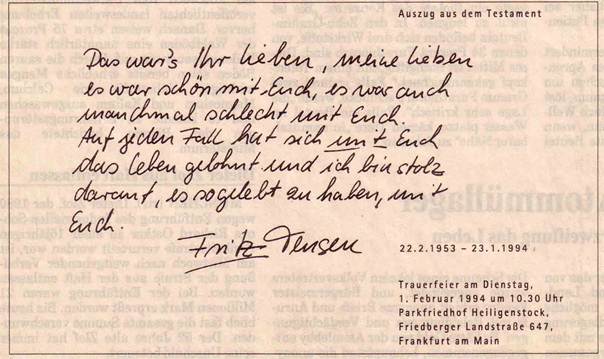 Auszug aus dem Testament
Das war's Ihr lieben, meine lieben
es war schön mit Euch, es war auch
manchmal schlecht mit Euch.
Auf jeden Fall hat sich mit Euch
das Leben gelohnt und ich bin stolz
darauf, es so gelebt zu haben, mit
Euch.
Fritz
22.2.1953 – 23.1.1994
Trauerfeier am Dienstag,
1. Februar 1994 um 10.30 Uhr
Parkfriedhof Heiligenstock,
Friedberger Landstraße 647,
Frankfurt am Main